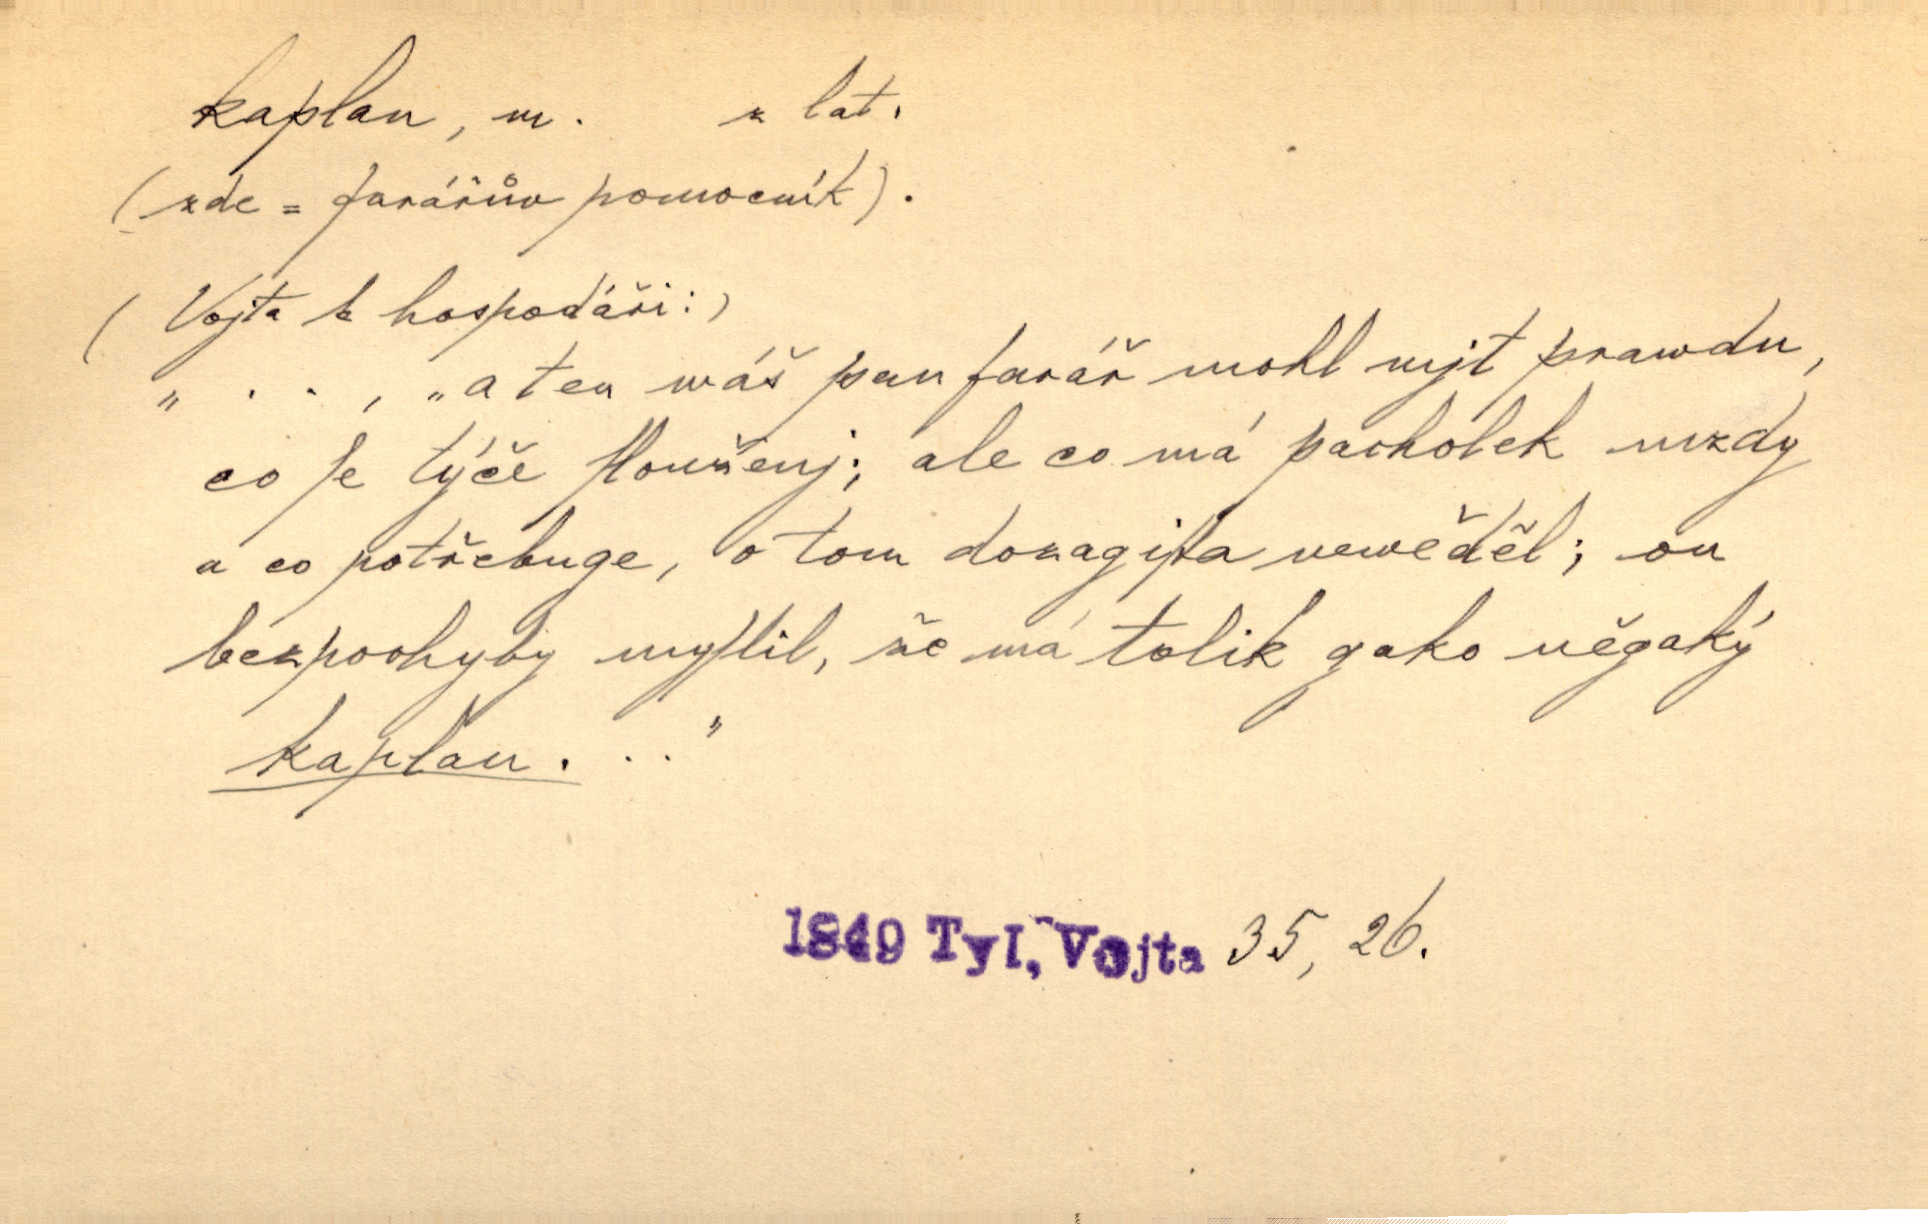 kaplan, m. z lat.
(zde = farářův pomocník).
(Vojta k hospodáři:)
„ . . , „a ten wáš pan farář mohl mjt prawdu,
co ſe týče ſlouženj; ale co má pacholek mzdy
a co potřebuge, o tom dozagiſta newěděl; on
bezpochyby myſlil, že má tolik gako něgaký
kaplan. . ."
1849 Tyl, Vojta 35, 26.